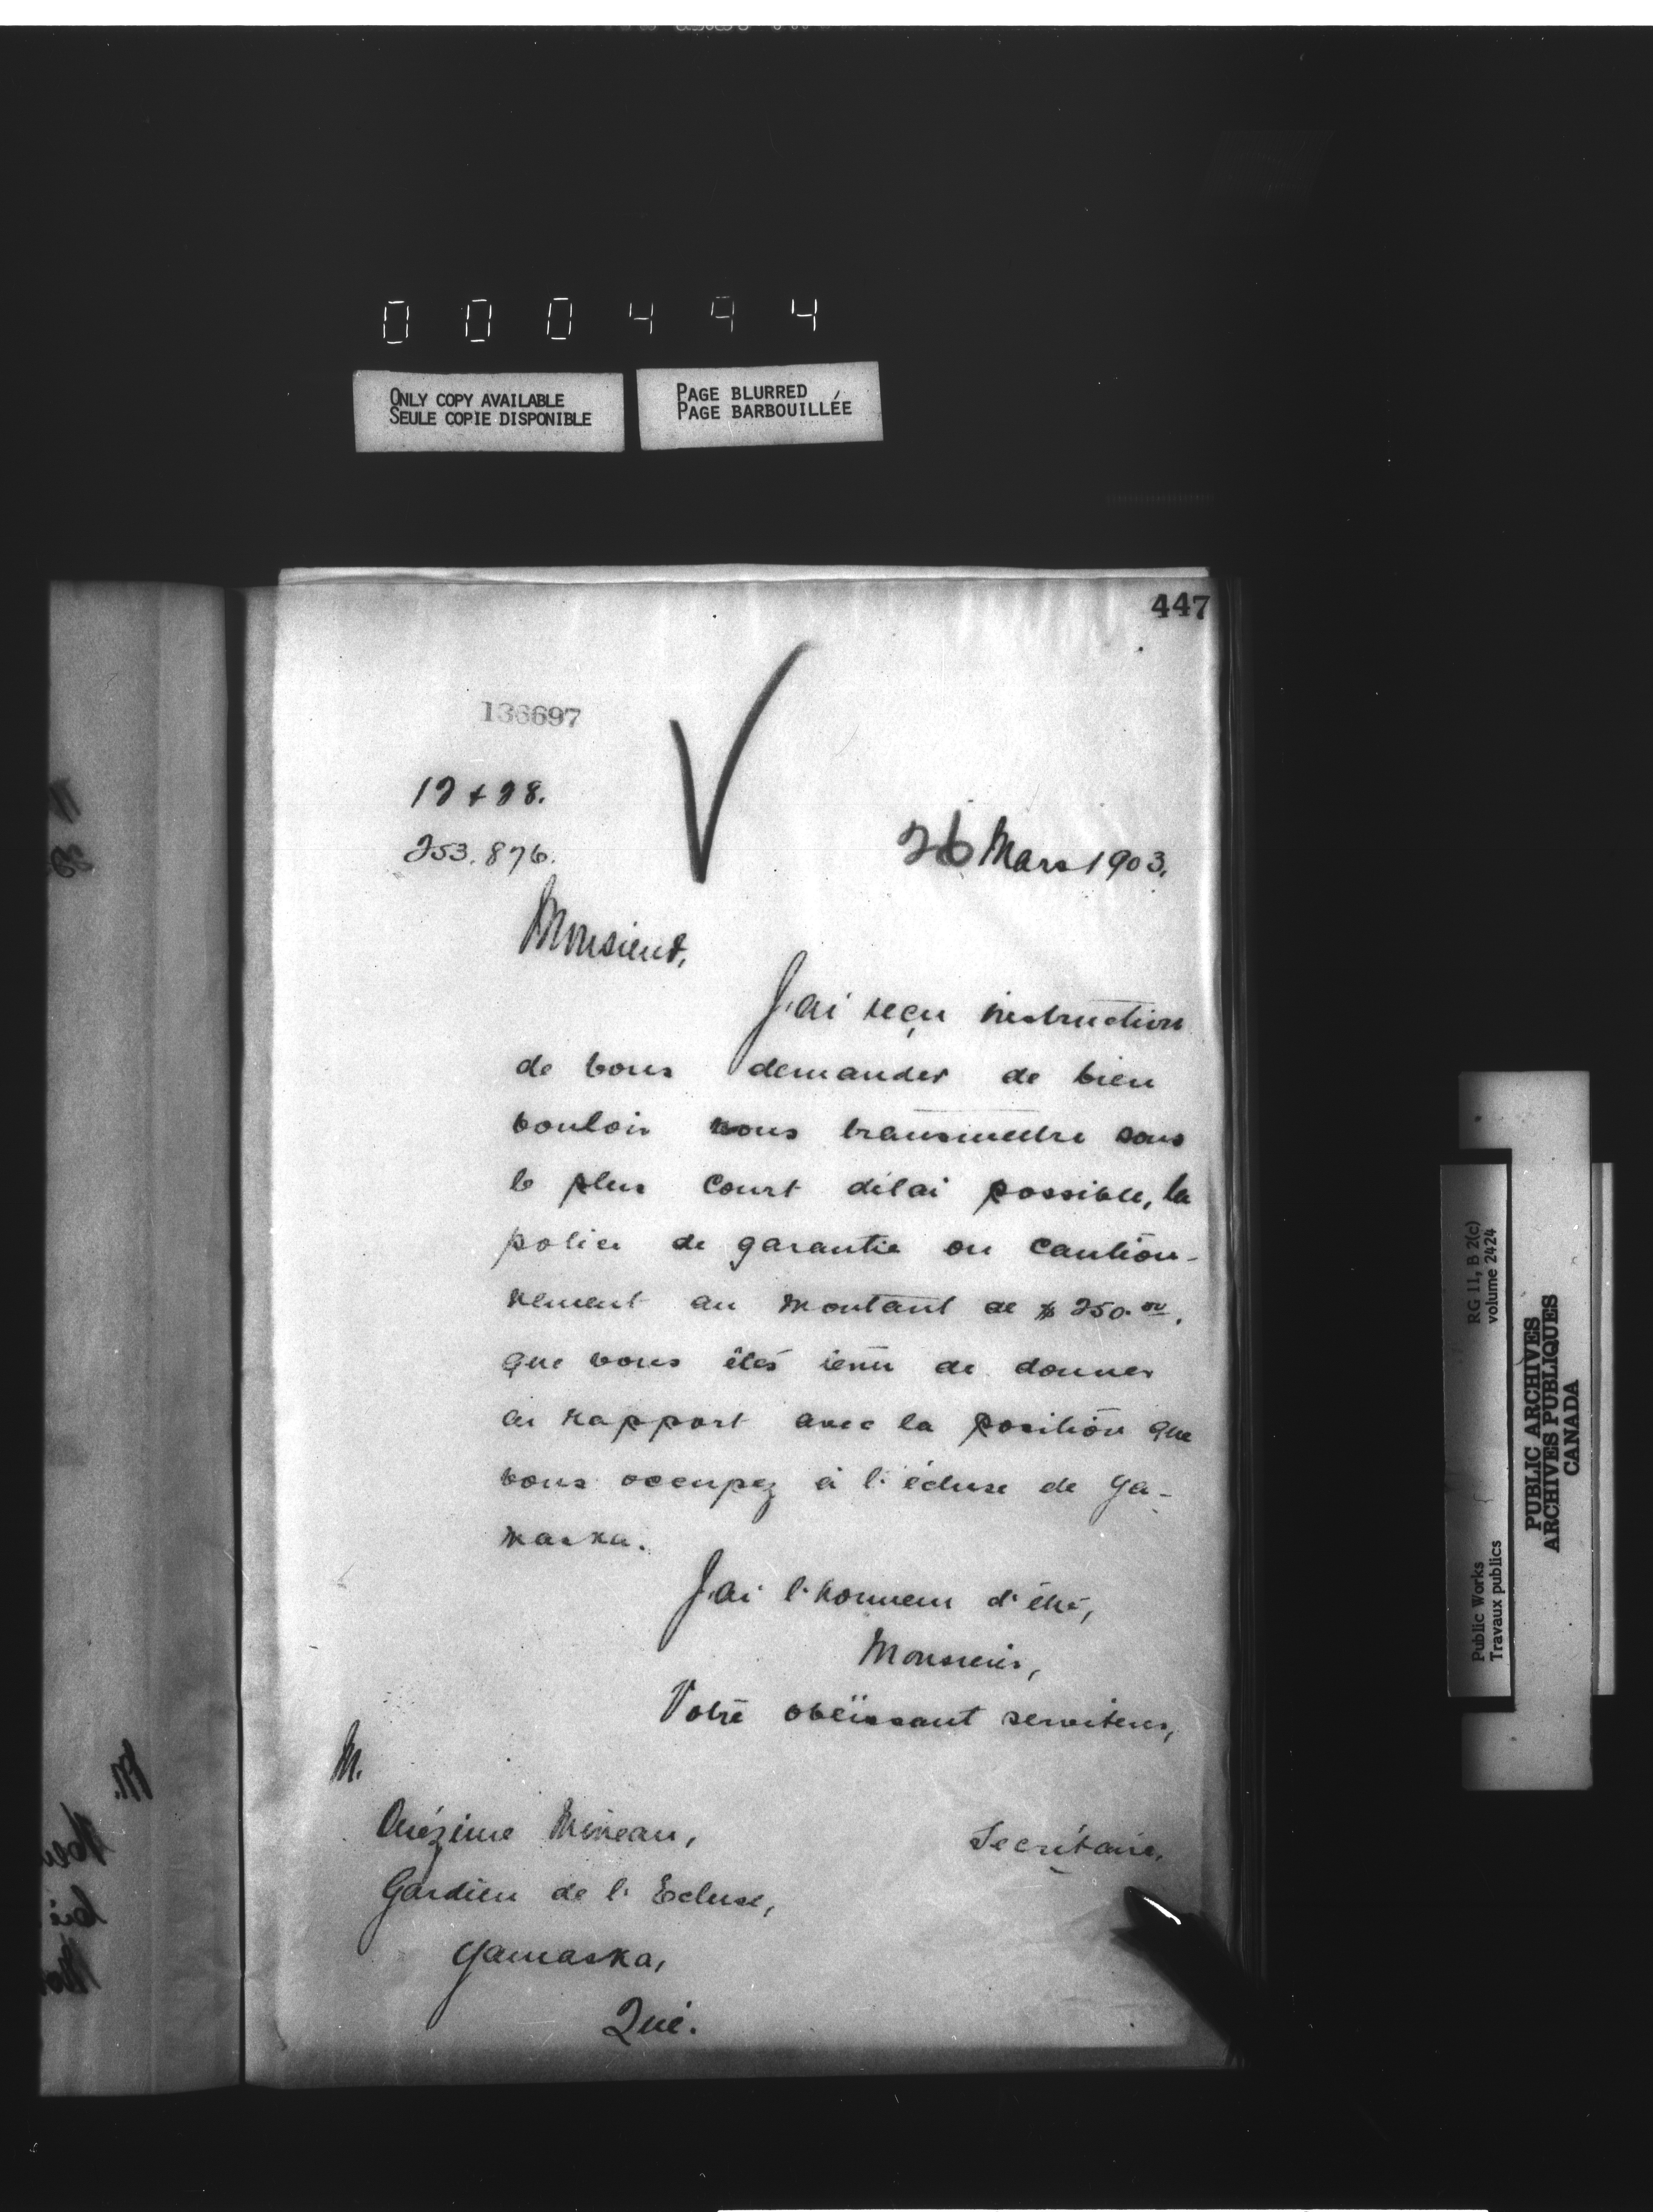 000494
ONLY COPY AVAILABLE
SEULE COPIE DISPONIBLE
PAGE BLURRED
PAGE BARBOUILLÉE
447
136697
12 + 28.
253.876.
26 Mars 1903.
Monsieur,
J'ai reçu instruction
de vous demander de bien
vouloir nous transmettre sous
le plus court délai possible, la
police de garantie ou caution-
nement au montant de $250.00.
que vous êtes tenu de donner
en rapport avec la position que
vous occupez à l'écluse de Ya-
maska.
J'ai l'honneur d'être,
Monsieur,
Votre obéissant serviteur,
Secrétaire,
M.
Onézime Mineau,
Gardien de l'Ecluse,
Yamaska,
Qué.
RG 11, B 2(c)
volume 2424
Public Works
Travaux publics
PUBLIC ARCHIVES
ARCHIVES PUBLIQUES
CANADA